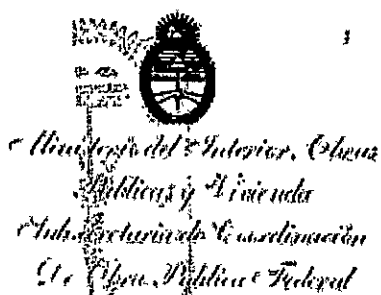 Ministerio del Interior, Obras
Públicas y Vivienda
Subsecretaría de Coordinación
De Obra Pública Federal